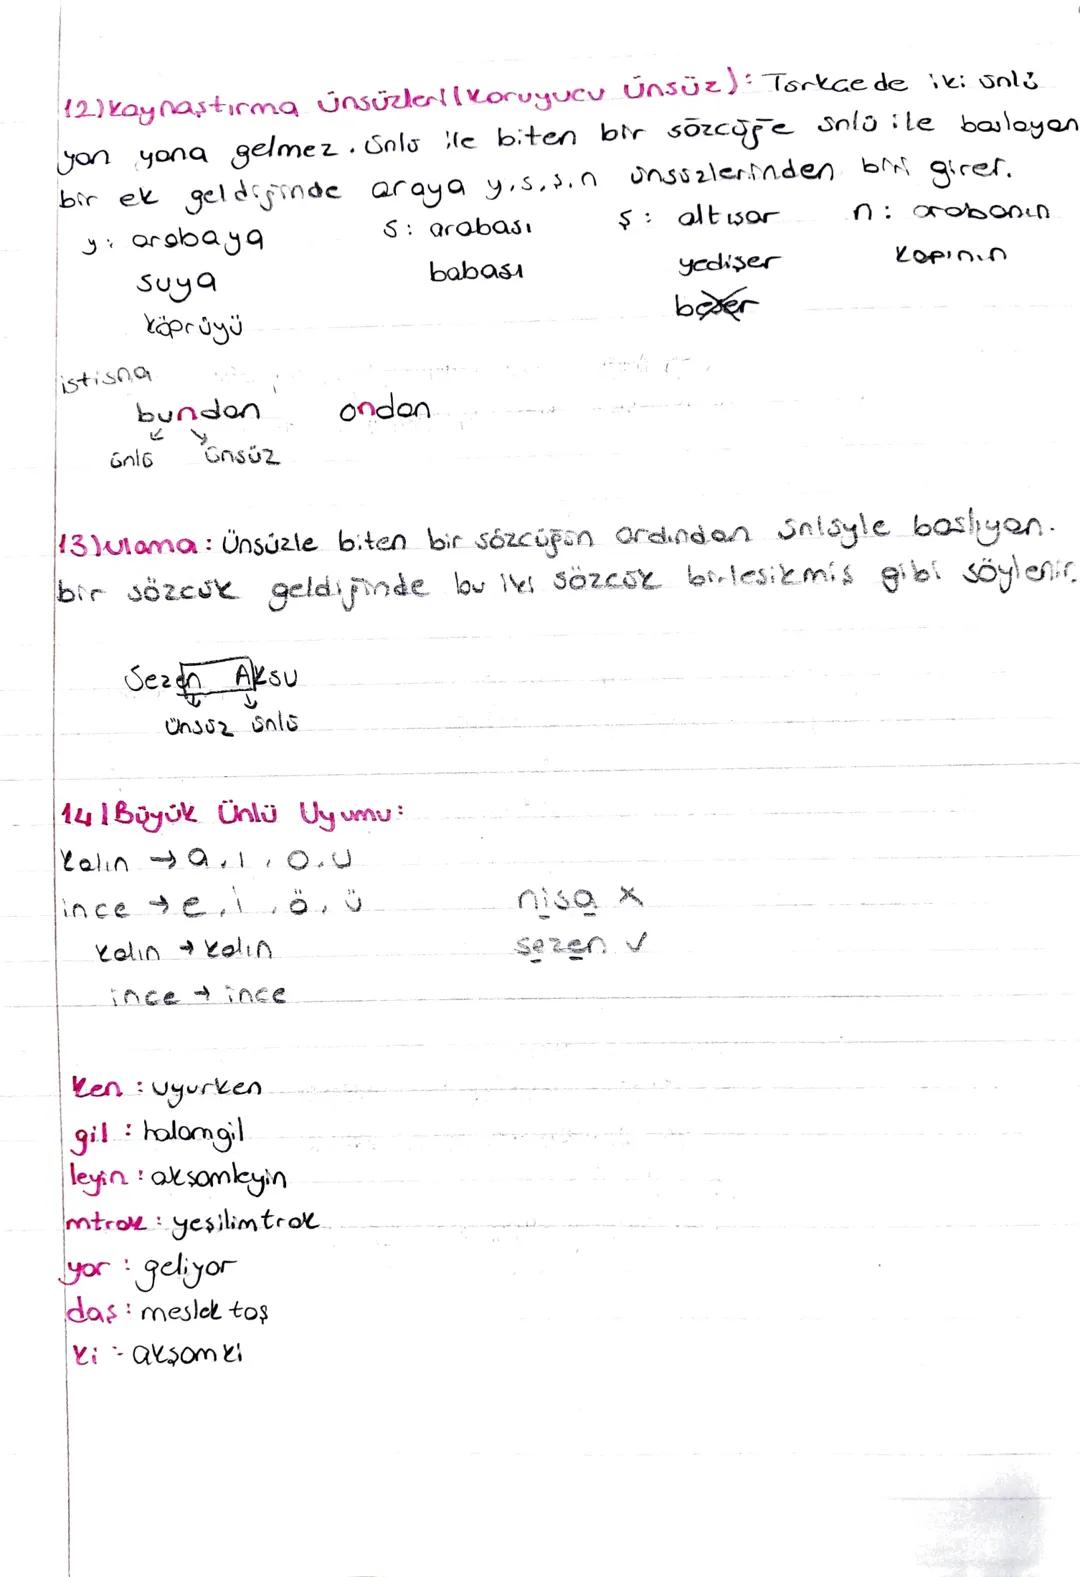 12) Kaynaştırma Ünsüzleri (Koruyucu Ünsüz): Türkcede iki ünlü
yan yana gelmez. Ünlü ile biten bir sözcüğe ünlü ile başlayan
bir ek geldiğinde araya y,s,ş,n ünsüzlerinden biri girer.
y: arabaya s: arabası ş: altışar n: arabanın
suya babası yedişer kapının
köprüyü beşer
istisna
bundan ondan
ünlü ünsüz
13) Ulama: Ünsüzle biten bir sözcüğün ardından ünlüyle başlıyan.
bir sözcük geldiğinde bu iki sözcük birleşikmiş gibi söylenir.
Sezen Aksu
ünsüz ünlü
14) Büyük Ünlü Uyumu:
Kalın → a, ı, o, u
ince → e, i, ö, ü nisa x
kalın → kalın sezen ✓
ince → ince
Ken : uyurken
gil : halamgil
leyin : akşamleyin
mtrak : yeşilimtrak
yor : geliyor
daş : meslektaş
ki : akşamki